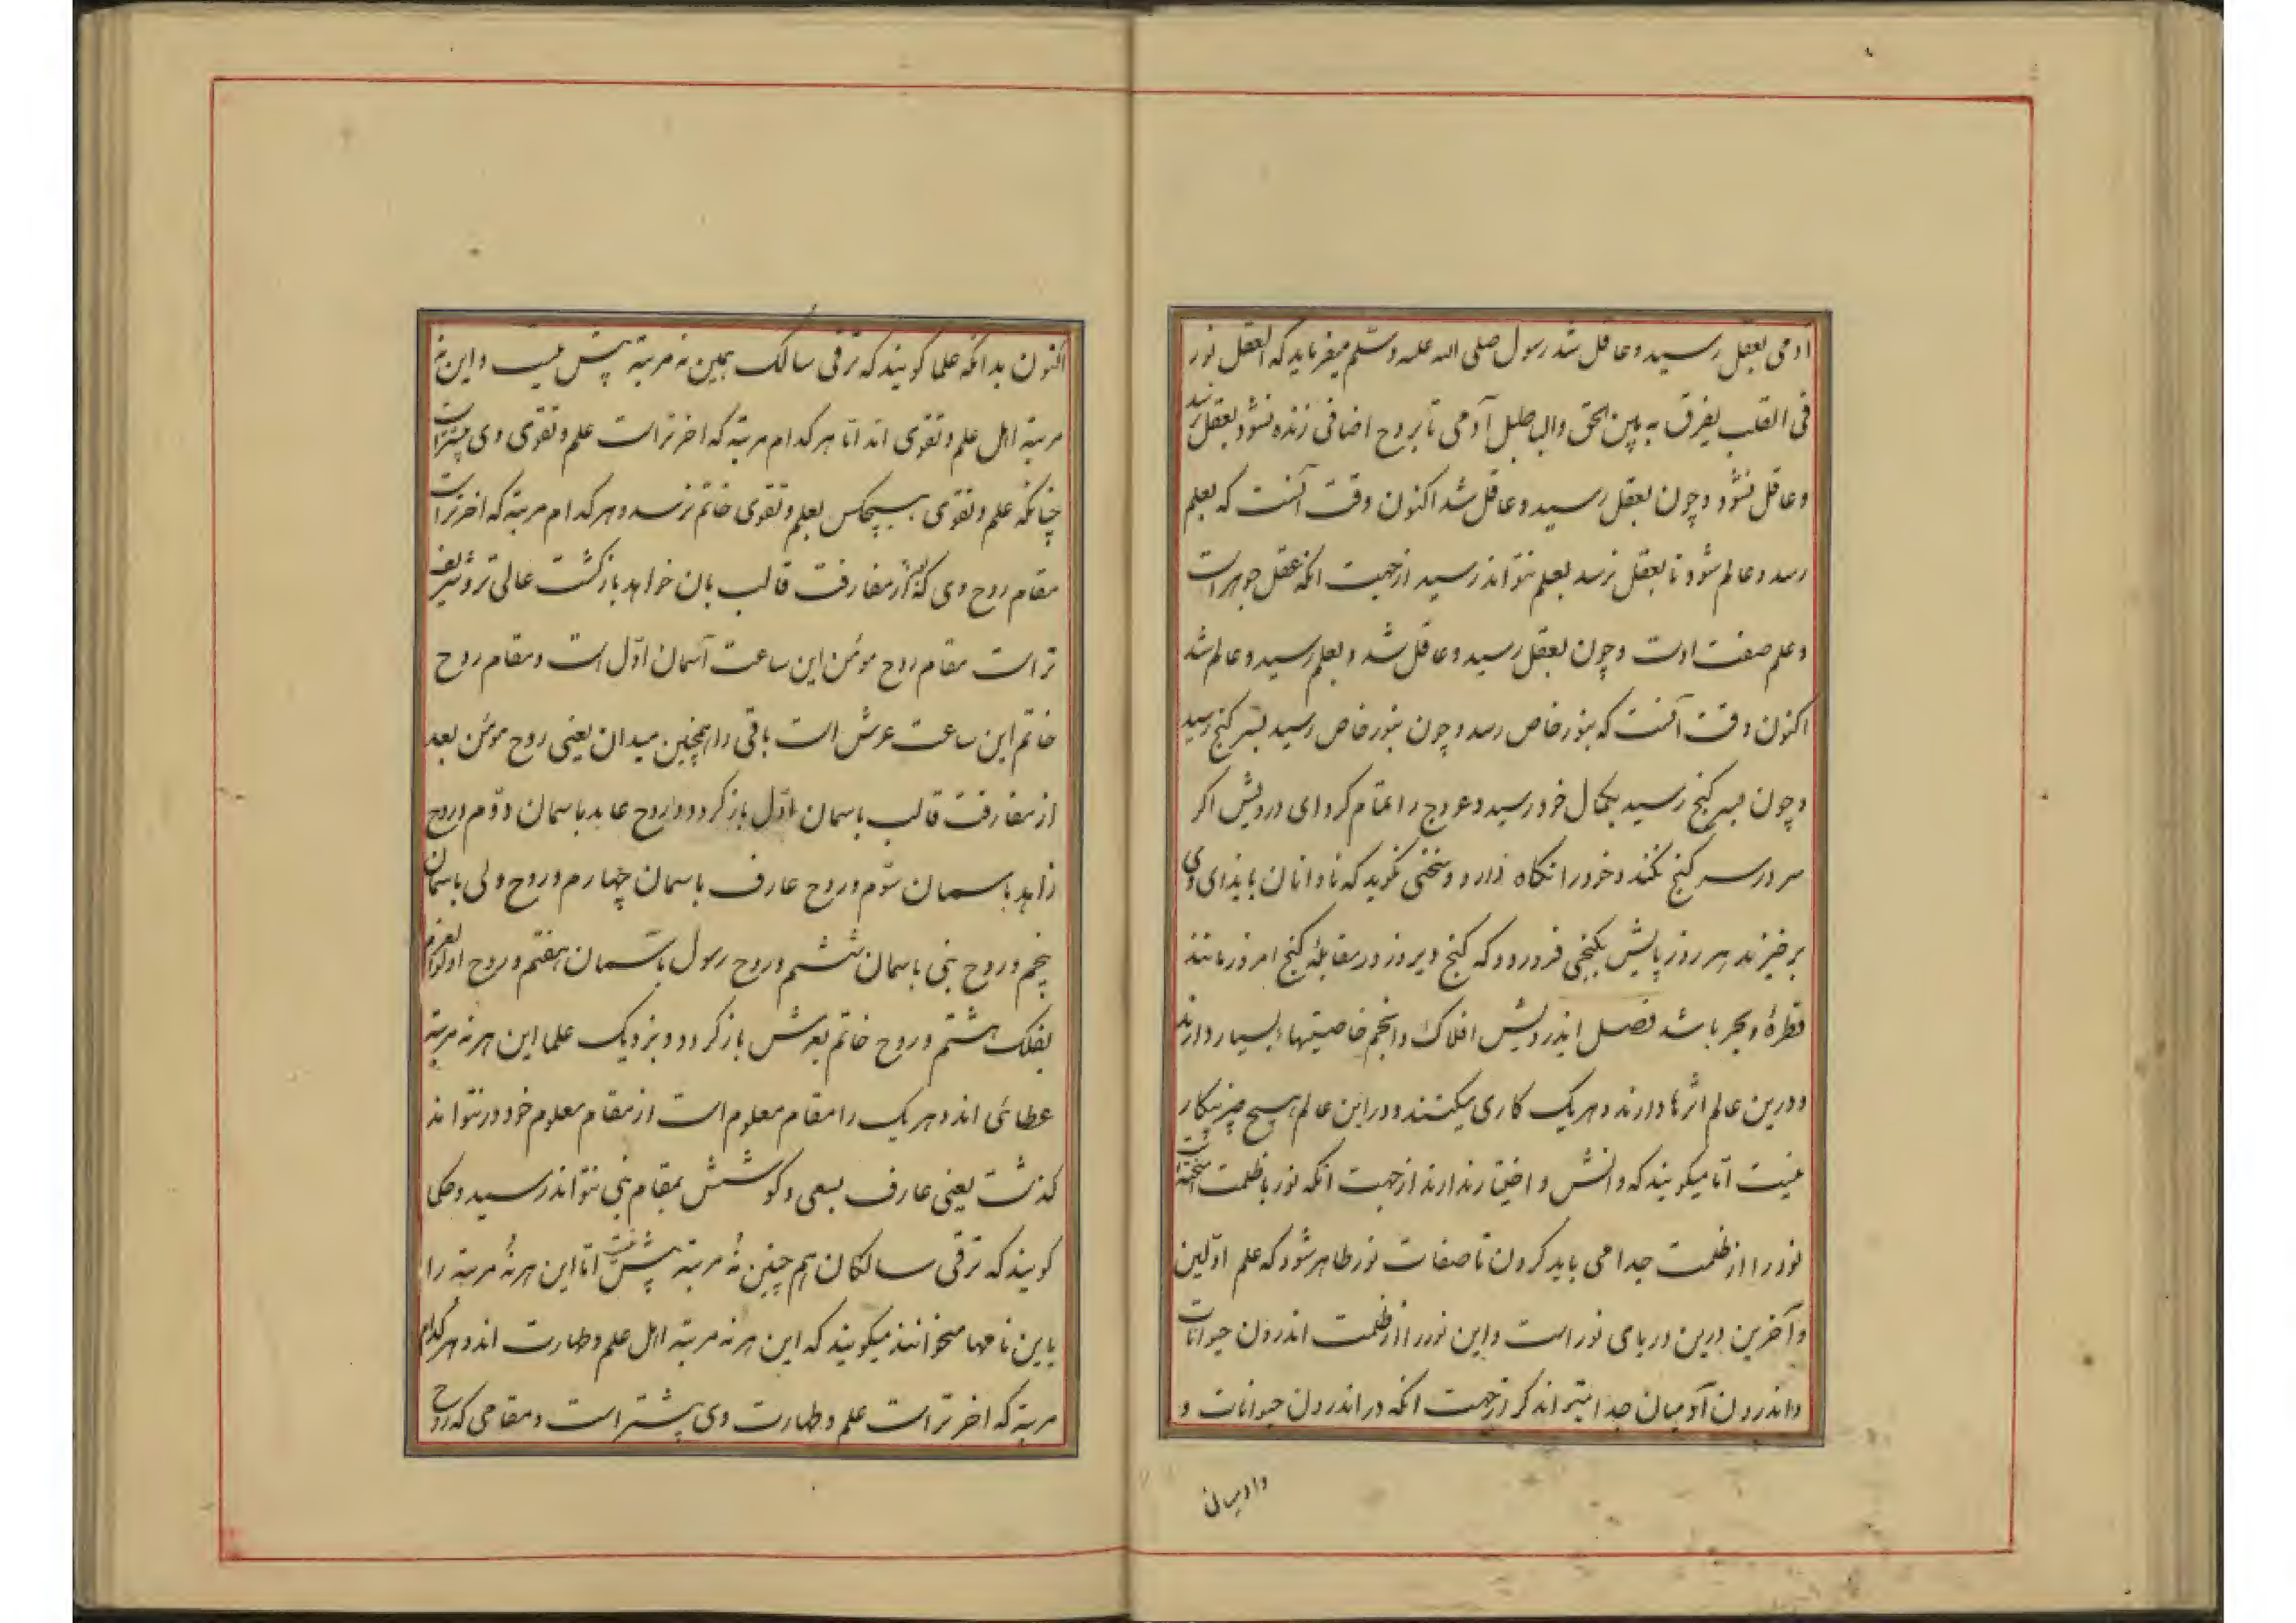 آدمی بعقل رسید و عاقل شد رسول صلی الله علیه وسلم میفرماید که العقل نور
فی القلب یفرق به بین الحق والباطل آدمی تا بروح اضافی زنده نشود بعقل نرسد
و عاقل نشود و چون بعقل رسید و عاقل شد اکنون وقت آنست که بعلم
رسد و عالم شود تا بعقل نرسد بعلم نتواند رسید از جهت انکه عقل جوهر است
و علم صفت اوست و چون بعقل رسید و عاقل شد و بعلم رسید و عالم شد
اکنون وقت آنست که بنور خاص رسد و چون بنور خاص رسید بسر کنج رسید
و چون بسر کنج رسید بکمال خود رسید و عروج را تمام کرد ای درویش اکر
سر در سر کنج نکند و خود را نکاه دارد و سخنی نکوید که نادانان بایذای وی
برخیزند هر روز پایش بکنجی فرو رود که کنج دیروز در مقابله کنج امروز مانند
قطره و بحر باشد فصل ایدرویش افلاک و انجم خاصیتهاء بسیار دارند
و درین عالم اثرها دارند و هر یک کاری میکنند و در این عالم هیچ چیز بیکار
نیست اما میکویند که دانش و اختیار ندارند از جهت انکه نور با ظلمت آمیخته است
نور را از ظلمت جدا می باید کردن تا صفات نور ظاهر شود که علم اولین
و آخرین درین دریای نور است و این نور را از ظلمت اندرون حیوانات
و اندرون آدمیان جدا میتواند کرد از جهت انکه در اندرون حیوانات و
وادمیان
اکنون بدانکه علما کویند که ترقی سالک همین نه مرتبه بیش نیست و این نه
مرتبه اهل علم و تقوی اند اما هر کدام مرتبه که اخرتر است علم و تقوی وی بیشتر است
چنانکه علم و تقوی هیچکس بعلم و تقوی خاتم نرسد و هر کدام مرتبه که اخرتر است
مقام روح وی که بعد از مفارقت قالب بان خواهد بازکشت عالی تر و شریف
تر است مقام روح مومن این ساعت آسمان اول است و مقام روح
خاتم این ساعت عرش است باقی را همچنین میدان یعنی روح مومن بعد
از مفارقت قالب باسمان اول باز کردد و روح عابد باسمان دوم و روح
زاهد باسمان سوم و روح عارف باسمان چهارم و روح ولی باسمان
پنجم و روح نبی باسمان ششم و روح رسول باسمان هفتم و روح اولوالعزم
بفلک هشتم و روح خاتم بعرش باز کردد و بنزدیک علما این هر نه مرتبه
عطائی اند و هر یک را مقام معلوم است از مقام معلوم خود در نتواند
کذشت یعنی عارف بسعی و کوشش بمقام نبی نتواند رسید و حکما
کویند که ترقی سالکان هم چنین نه مرتبه بیش نیست اما این هر نه مرتبه را
باین نامها میخوانند میکویند که این هر نه مرتبه اهل علم و طهارت اند و هر کدام
مرتبه که اخرتر است علم و طهارت وی بیشتر است و مقامی که روح